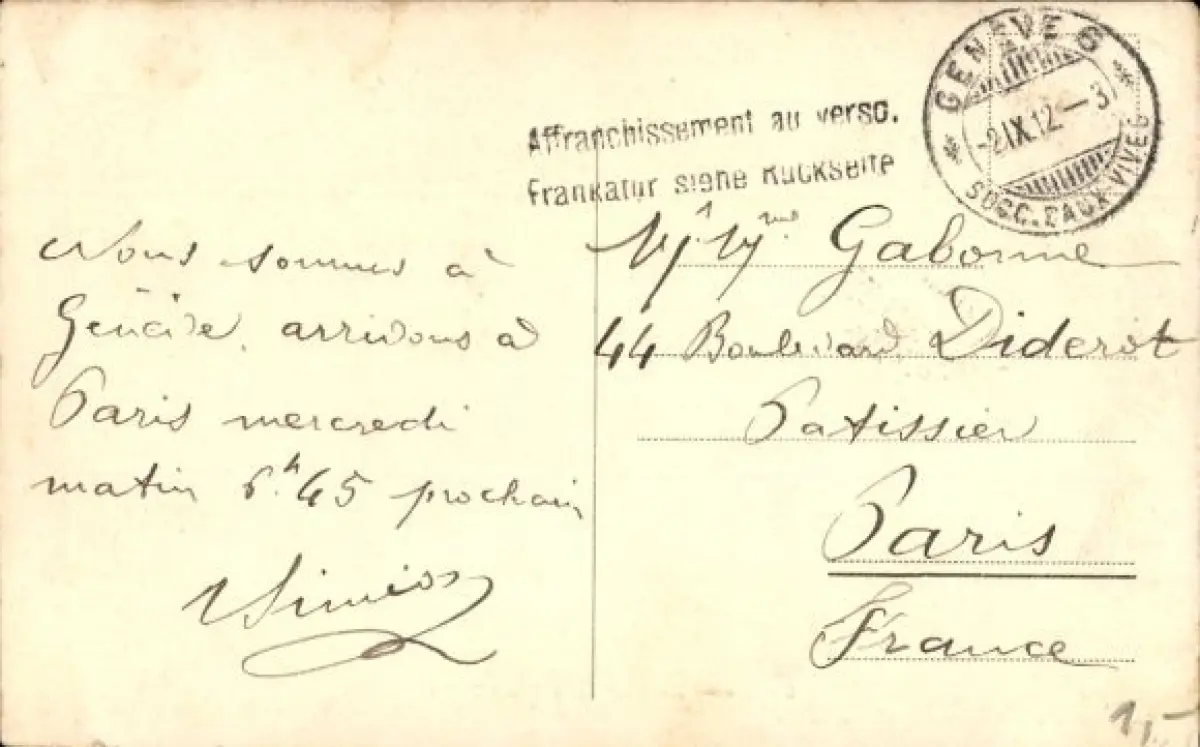 GENÈVE 6
-2 IX.12.-3
SUCC. EAUX VIVES
Affranchissement au verso.
Frankatur siehe Rückseite
Nous sommes à
Genève, arrivons à
Paris mercredi
matin 6h 45 prochain
Mr Mme Gaborine
44 Boulevard Diderot
Patissier
Paris
France
1,-